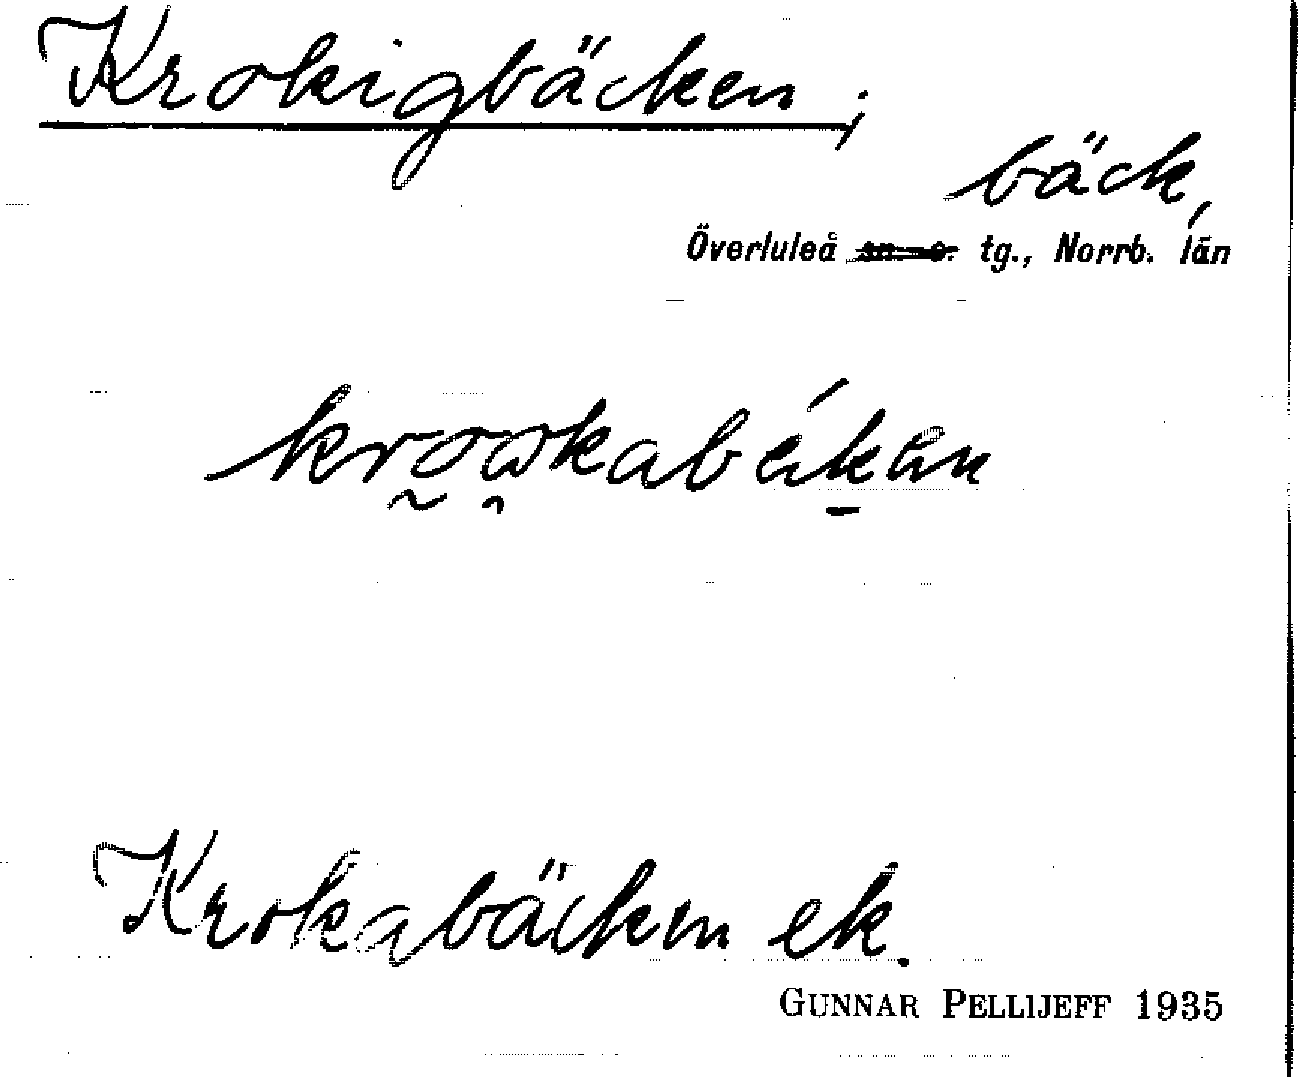 Krokigbäcken,
bäck,
Överluleå tg., Norrb. län
Krokabäcken ek.
GUNNAR PELLIJEFF 1935